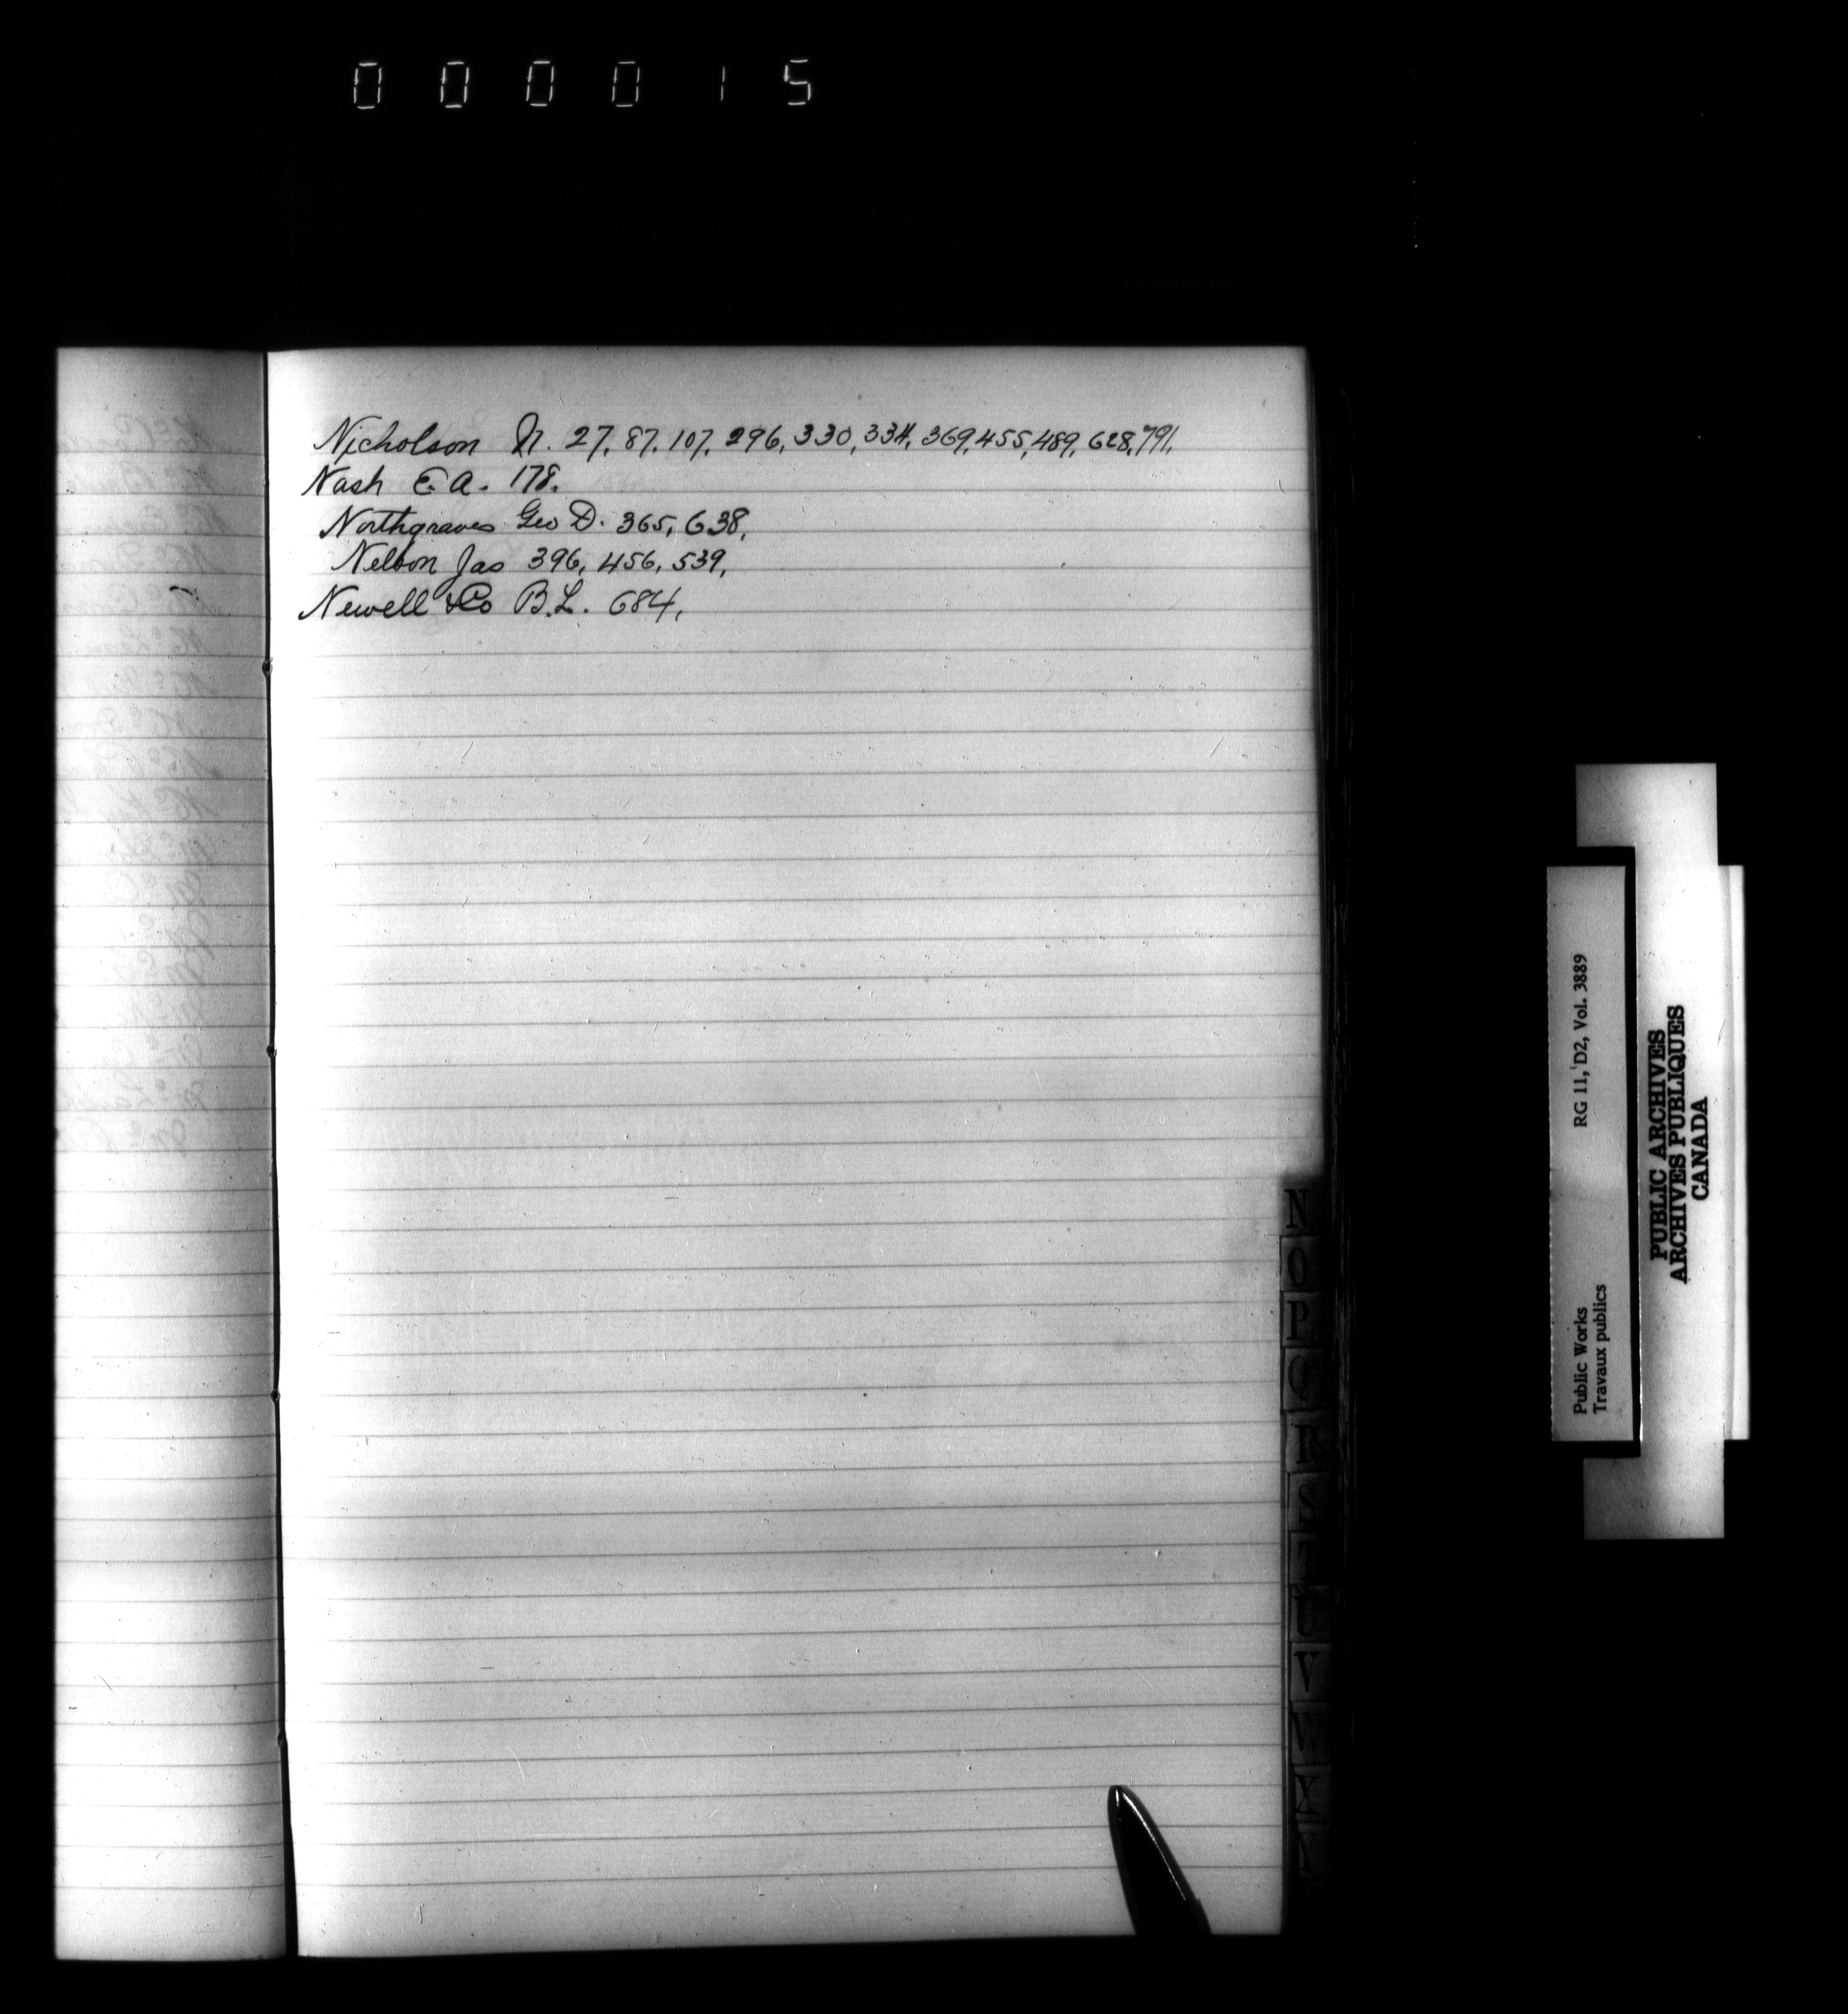 000015
Nicholson N. 27, 87, 107, 296, 330, 334, 369, 455, 489, 628, 791,
Nash E. A. 178.
Northgraves Geo D. 365, 638,
Nelson Jas 396, 456, 539,
Newell & Co B. L. 684,
N
O
P
Q
R
S
T
U
V
W
X
Y
Public Works
Travaux publics
RG 11, D2, Vol. 3889
PUBLIC ARCHIVES
ARCHIVES PUBLIQUES
CANADA